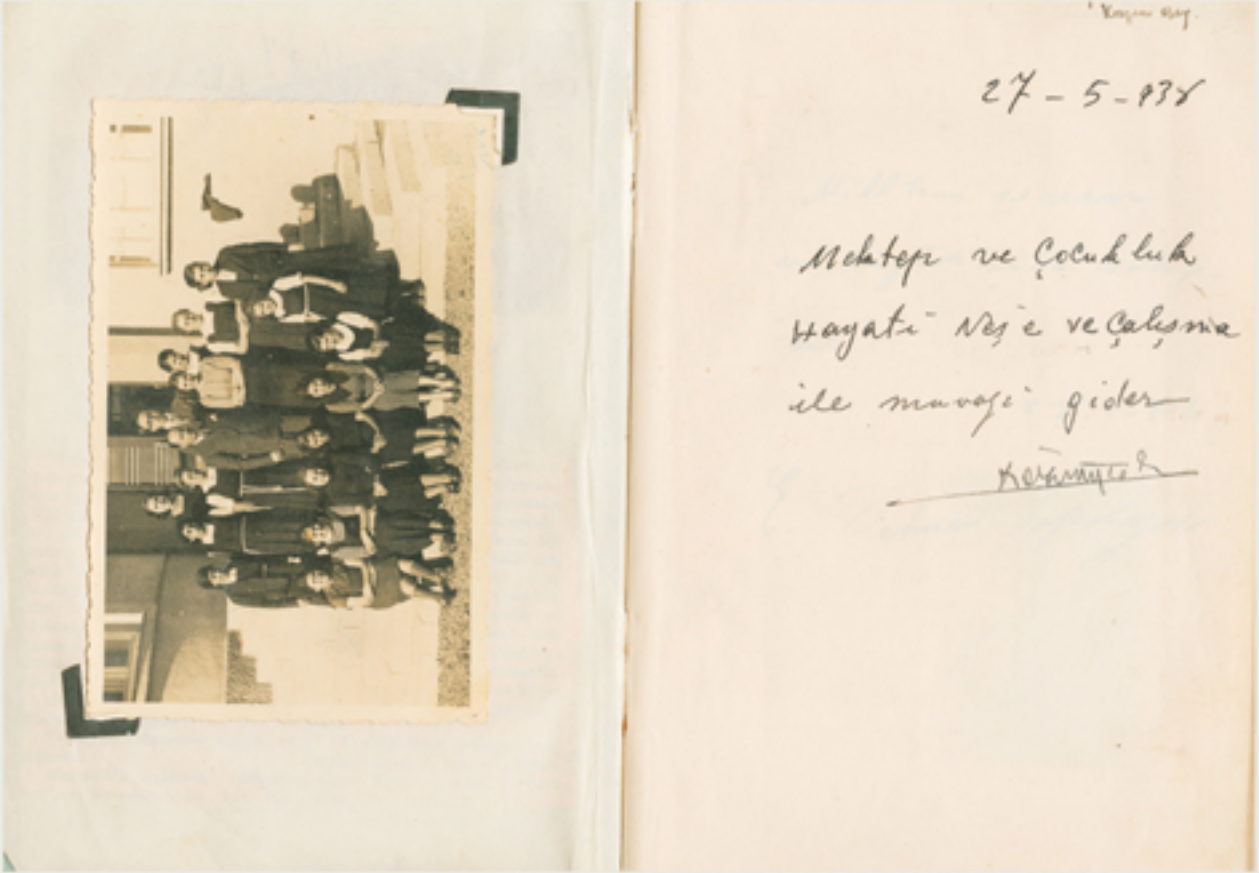 27 - 5 - 938
Mektep ve Çocukluk
Hayati Neş'e ve Çalışma
ile muvazi gider